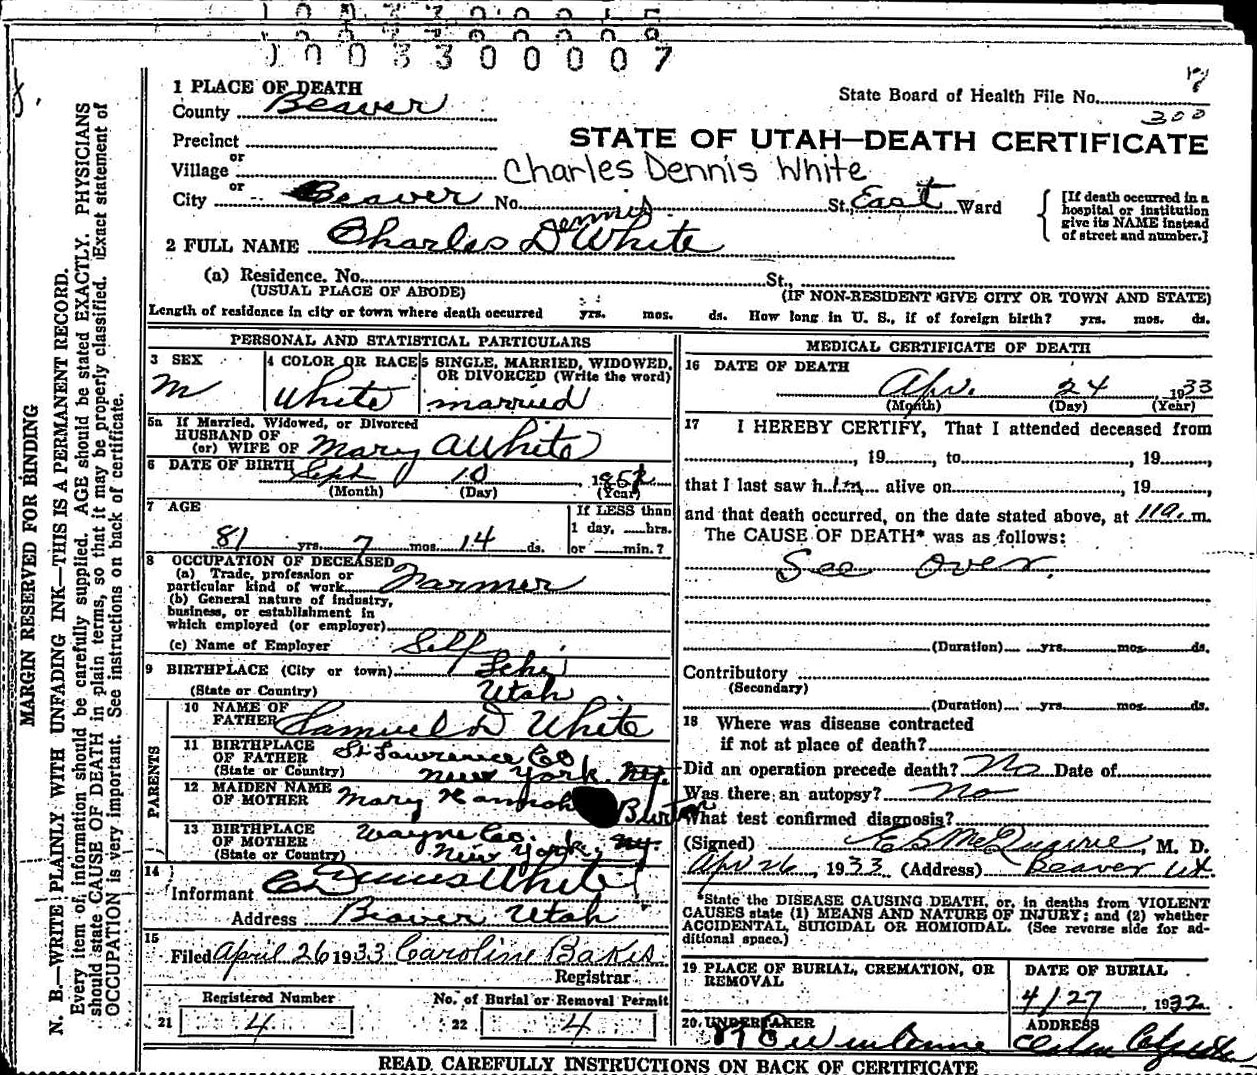 1003300007
1 PLACE OF DEATH
County Beaver
State Board of Health File No. 7
300
Precinct
or
Village
STATE OF UTAH—DEATH CERTIFICATE
Charles Dennis White
or
City Beaver No. St., East Ward
[If death occurred in a hospital or institution give its NAME instead of street and number.]
Dennis
2 FULL NAME Charles D White
(a) Residence. No. St.,
(USUAL PLACE OF ABODE) (IF NON-RESIDENT GIVE CITY OR TOWN AND STATE)
Length of residence in city or town where death occurred yrs. mos. ds. How long in U. S., if of foreign birth? yrs. mos. ds.
PERSONAL AND STATISTICAL PARTICULARS
3 SEX
M
4 COLOR OR RACE
White
5 SINGLE, MARRIED, WIDOWED, OR DIVORCED (Write the word)
married
5a If Married, Widowed, or Divorced
HUSBAND OF
(or) WIFE OF Mary A White
6 DATE OF BIRTH Sept 10, 185
(Month) (Day) (Year)
7 AGE
81 yrs. 7 mos. 14 ds.
If LESS than
1 day, hrs.
or min.?
8 OCCUPATION OF DECEASED
(a) Trade, profession or
particular kind of work Farmer
(b) General nature of industry,
business, or establishment in
which employed (or employer)
(c) Name of Employer Self
9 BIRTHPLACE (City or town) Lehi
(State or Country) Utah
PARENTS
10 NAME OF
FATHER Samuel D White
11 BIRTHPLACE
OF FATHER St Lawrence Co
(State or Country) New York. Ny.
12 MAIDEN NAME
OF MOTHER Mary Hannah Burton
13 BIRTHPLACE
OF MOTHER Wayne Co.
(State or Country) New York, Ny.
14
Informant C Dennis White
Address Beaver Utah
15
Filed April 26 1933 Caroline Bakes
Registrar
Registered Number
21 4
No. of Burial or Removal Permit
22 4
MEDICAL CERTIFICATE OF DEATH
16 DATE OF DEATH
Apr. 24 1933
(Month) (Day) (Year)
17 I HEREBY CERTIFY, That I attended deceased from
, 19 , to , 19 ,
that I last saw h im alive on , 19 ,
and that death occurred, on the date stated above, at 11a. m.
The CAUSE OF DEATH* was as follows:
See over.
(Duration) yrs. mos. ds.
Contributory
(Secondary)
(Duration) yrs. mos. ds.
18 Where was disease contracted
if not at place of death?
Did an operation precede death? No Date of
Was there an autopsy? no
What test confirmed diagnosis?
(Signed) E S McQuarrie, M. D.
Apr 26, 1933 (Address) Beaver Ut
*State the DISEASE CAUSING DEATH, or, in deaths from VIOLENT
CAUSES state (1) MEANS AND NATURE OF INJURY; and (2) whether
ACCIDENTAL, SUICIDAL OR HOMICIDAL. (See reverse side for ad-
ditional space.)
19 PLACE OF BURIAL, CREMATION, OR
REMOVAL
DATE OF BURIAL
4/27, 1932
20 UNDERTAKER
ADDRESS
READ CAREFULLY INSTRUCTIONS ON BACK OF CERTIFICATE
MARGIN RESERVED FOR BINDING
N. B.—WRITE PLAINLY WITH UNFADING INK—THIS IS A PERMANENT RECORD.
Every item of information should be carefully supplied. AGE should be stated EXACTLY. PHYSICIANS
should state CAUSE OF DEATH in plain terms, so that it may be properly classified. Exact statement of
OCCUPATION is very important. See instructions on back of certificate.